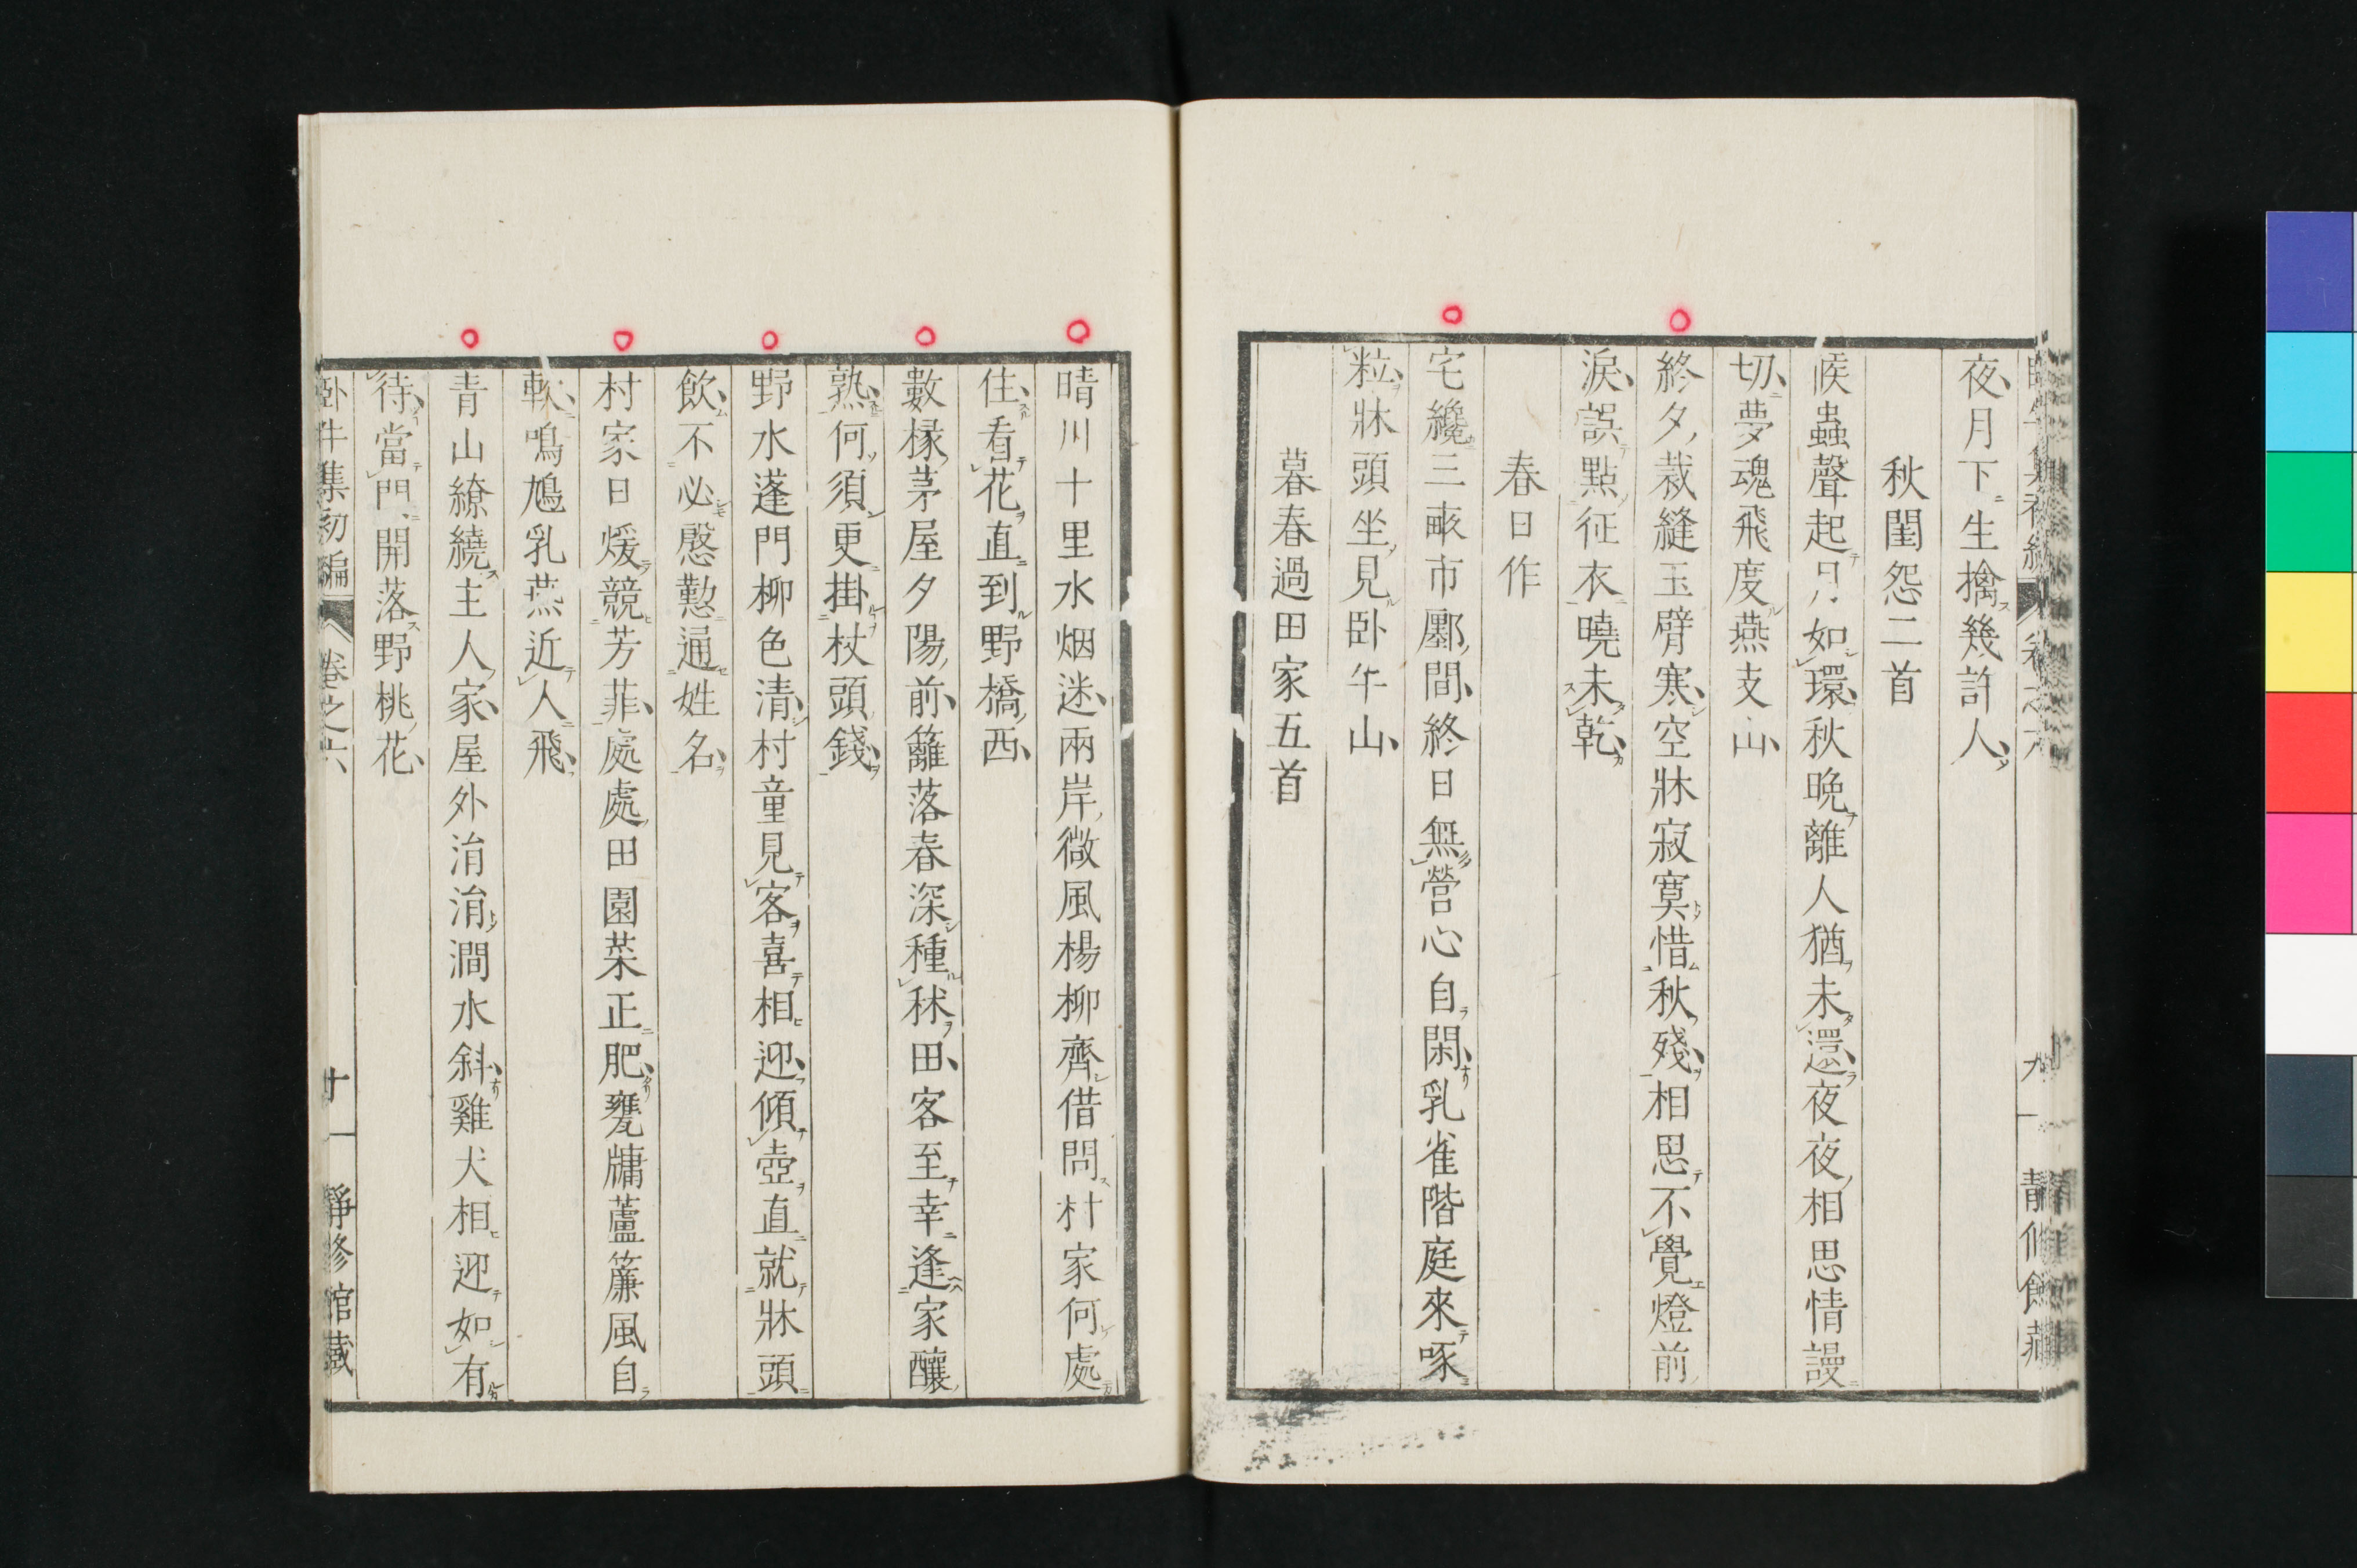 夜月下生擒幾許人
秋閨怨二首
候蟲聲起月如環秋晩離人猶未還夜夜相思情謾
切夢魂飛度燕支山
終夕裁縫玉臂寒空牀寂寞惜秋殘相思不覺燈前
淚誤點征衣曉未乾
春日作
宅纔三畝市廛間終日無營心自閑乳雀階庭來啄
粒牀頭坐見卧牛山
暮春過田家五首
晴川十里水烟迷兩岸微風楊柳齊借問村家何處
住看花直到野橋西
數椽茅屋夕陽前籬落春深種秫田客至幸逢家釀
熟何須更掛杖頭錢
野水蓬門柳色清村童見客喜相迎傾壺直就牀頭
飲不必慇懃通姓名
村家日煖競芳菲處處田園菜正肥甕牖蘆簾風自
軟鳴鳩乳燕近人飛
青山繚繞主人家屋外涓涓澗水斜雞犬相迎如有
待當門開落野桃花
卧牛集初編 卷之六 十一 靜修館藏